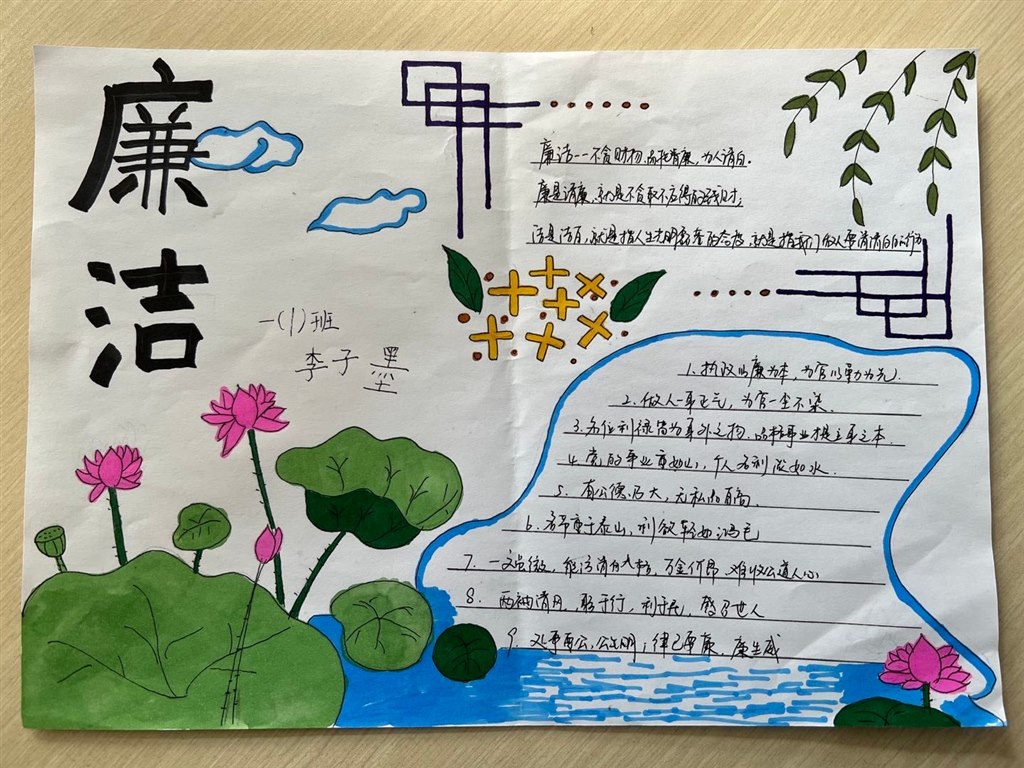 廉洁
一(1)班
李子墨
廉洁--不贪财物,品性清廉,为人清白.
廉是清廉,就是不贪取不应得的钱财;
洁是洁白,就是指人生光明磊落的态度,就是指我们做人要清清白白的行为
1.执政以廉为本,为官以勤为先.
2.做人一身正气,为官一尘不染.
3.名位利禄皆为身外之物,品格事业揽立身之本.
4.党的事业重如山,个人名利淡如水.
5.有公德乃大,无私品自高.
6.名节重于泰山,利欲轻如鸿毛
7.一文虽微,能污清白人格,万金价昂,难收公道人心
8.两袖清风,躬于行,利于民,
9.处事要公,公生明;律己要廉,廉生威